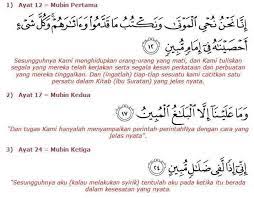 1) Ayat 12 – Mubin Pertama
إِنَّا نَحْنُ نُحْيِ الْمَوْتَىٰ وَنَكْتُبُ مَا قَدَّمُوا وَآثَارَهُمْ وَكُلَّ شَيْءٍ
أَحْصَيْنَاهُ فِي إِمَامٍ مُّبِينٍ ١٢
Sesungguhnya Kami menghidupkan orang-orang yang mati, dan Kami tuliskan
segala yang mereka telah kerjakan serta segala kesan perkataan dan perbuatan
yang mereka tinggalkan. Dan (ingatlah) tiap-tiap sesuatu kami catitkan satu
persatu dalam Kitab (ibu Suratan) yang jelas nyata.
2) Ayat 17 – Mubin Kedua
وَمَا عَلَيْنَا إِلَّا الْبَلَاغُ الْمُبِينُ ١٧
"Dan tugas Kami hanyalah menyampaikan perintah-perintahNya dengan cara yang
jelas nyata".
3) Ayat 24 – Mubin Ketiga
إِنِّي إِذًا لَّفِي ضَلَالٍ مُّبِينٍ ٢٤
"Sesungguhnya aku (kalau melakukan syirik) tentulah aku pada ketika itu berada
dalam kesesatan yang nyata.